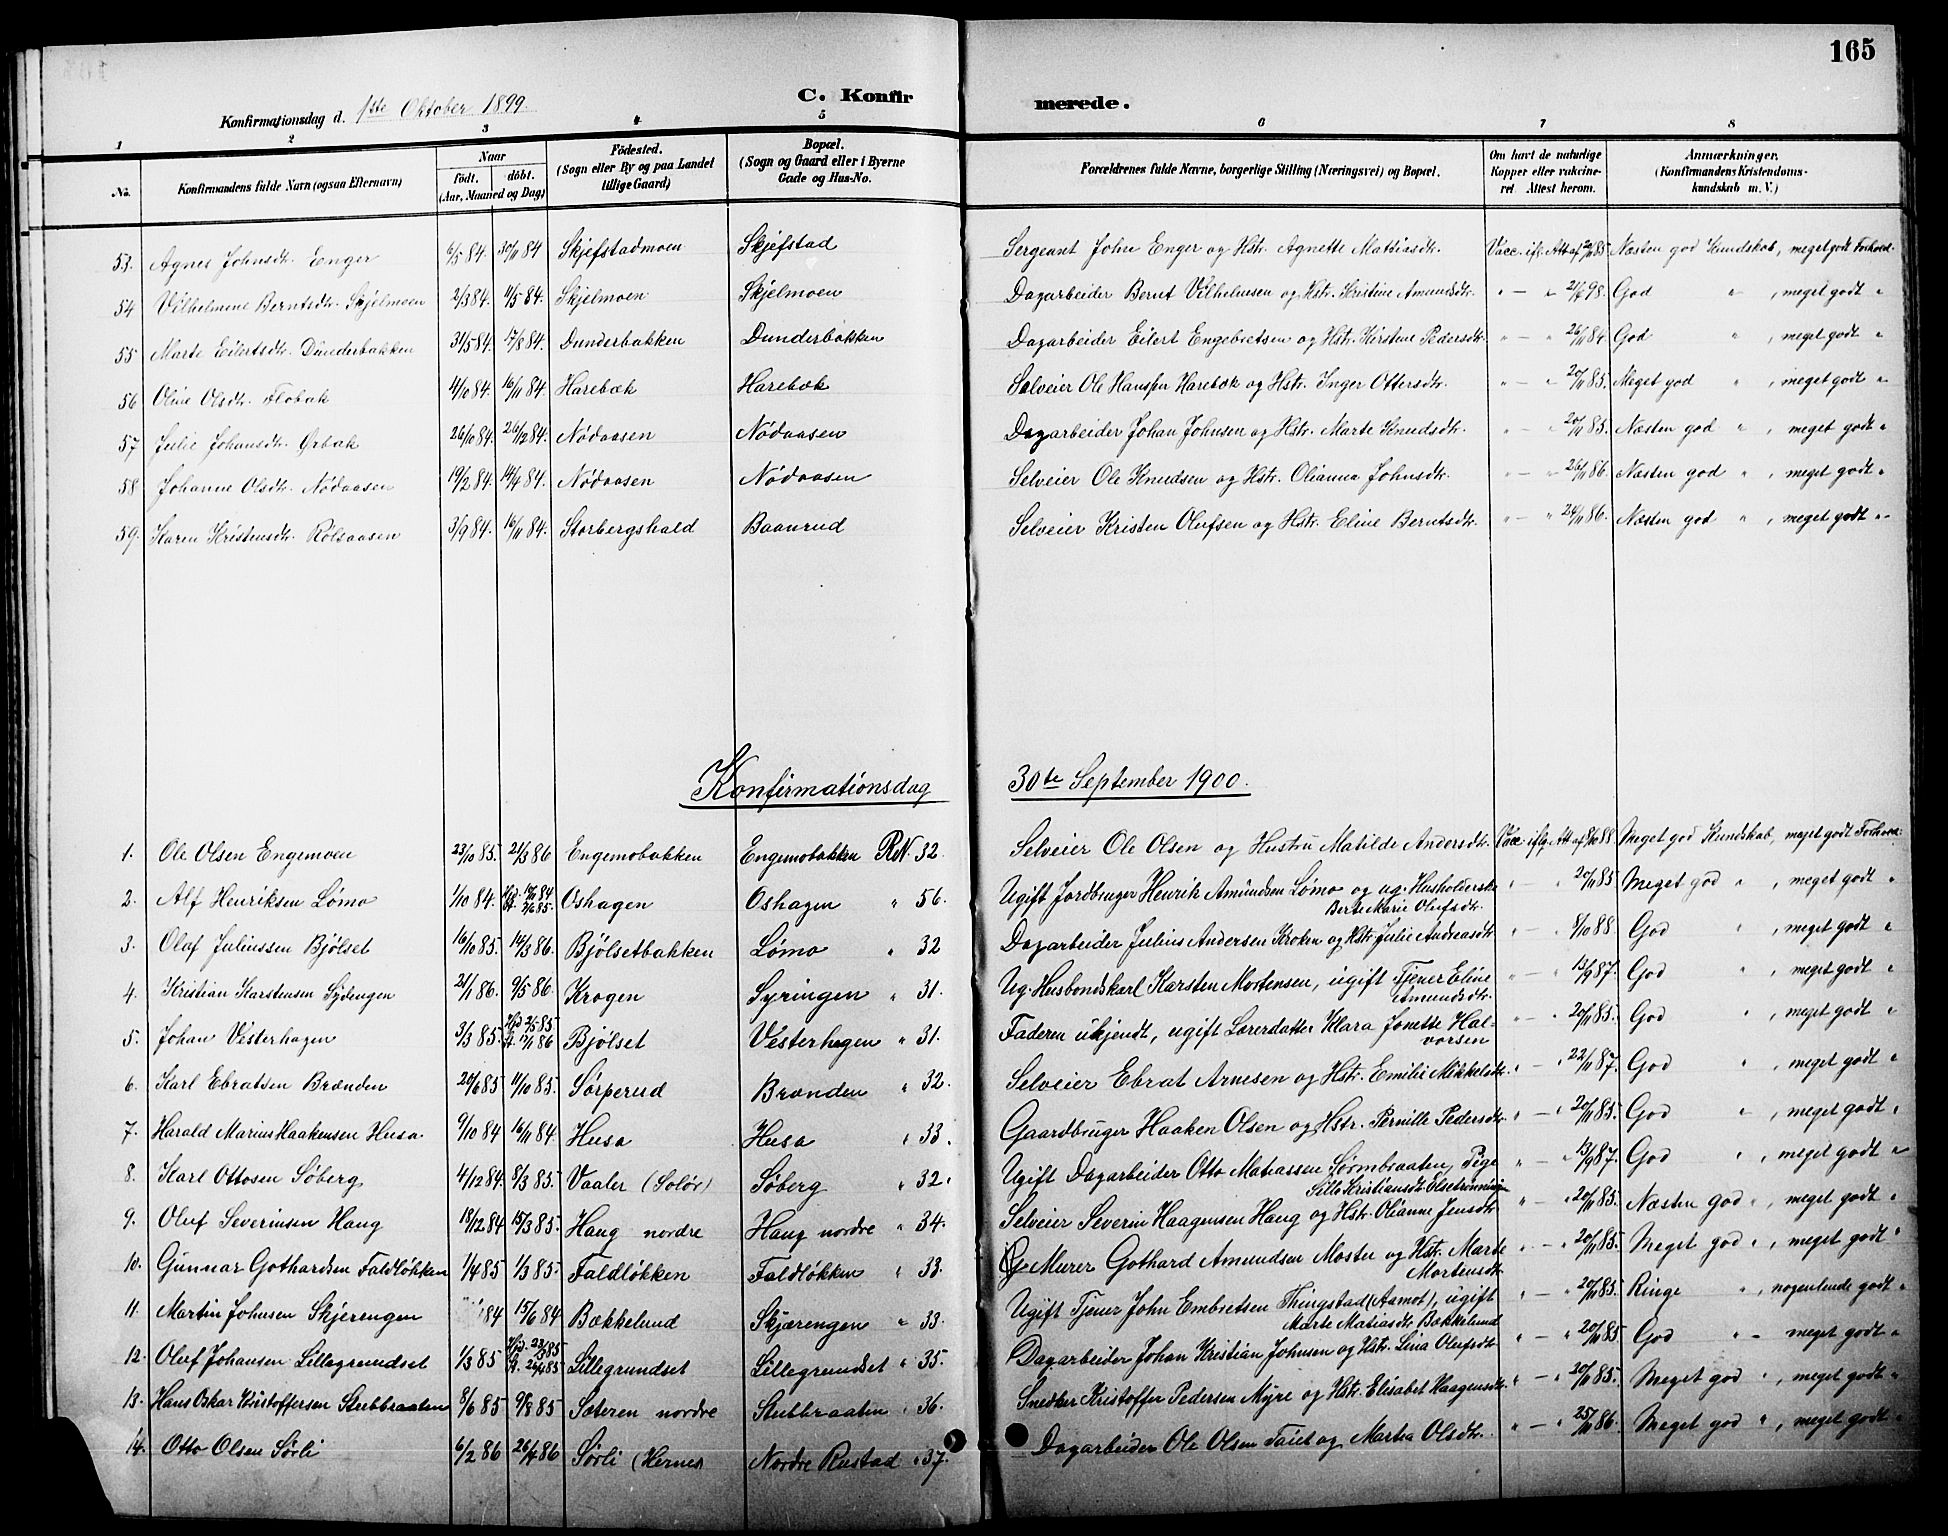 165
Konfirmationsdag d. 1ste Oktober 1899. C. Konfirmerede.
1 2 3 4 5 6 7 8
No. Konfirmandens fulde Navn (ogsaa Efternavn) Naar födt. döbt. (Aar, Maaned og Dag) Födested. (Sogn eller By og paa Landet tillige Gaard) Bopæl. (Sogn og Gaard eller i Byerne Gade og Hus-No. Forældrenes fulde Navne, borgerlige Stilling (Næringsvei) og Bopæl. Om havt de naturlige Kopper eller vakcineret. Attest herom. Anmærkninger. (Konfirmandens Kristendomskundskab m. V.)
53. Agnes Johnsdtr. Enger 6/5 84. 30/11 84 Skjefstadmoen Skjefstad Sergeant John Enger og Hstr. Agnette Mathiasdtr. Vacc. ifl. Att. af 20/11 85. Næsten god Kundskab, meget godt Forhold.
54 Vilhelmine Berntsdtr. Skjelmoen 2/3 84. 11/5 84. Skjelmoen Skjelmoen Dagarbeider Bernt Vilhelmsen og Hstr. Kristine Amundsdtr. " — " 21/6 98. God " , meget godt "
55 Marte Eilertsdtr. Dunderbakken 31/5 84. 17/8 84. Dunderbakken Dunderbakken Dagarbeider Eilert Engebretsen og Hstr. Kirstine Pedersdtr. " — " 26/11 84. God " , meget godt "
56 Oline Olsdtr. Flobak 4/10 84. 16/11 84. Harebæk Harebæk Selveier Ole Hansen Harebæk og Hstr. Inger Ottersdtr. " — " 20/11 85. Meget god " , meget godt "
57 Julie Johansdtr. Ørbak 26/10 84. 26/12 84. Nödaasen Nödaasen Dagarbeider Johan Johnsen og Hstr. Marte Knudsdtr. " — " 20/11 85. Næsten god " , meget godt "
58 Johanne Olsdtr. Nödaasen 19/2 84. 14/4 84. Nödaasen Nödaasen Selveier Ole Knudsen og Hstr. Olianna Johnsdtr. " — " 26/11 86. Næsten god " , meget godt "
59. Karen Kristensdtr. Rölsaasen 3/9 84. 16/11 84. Storbergshald Baanrud Selveier Kristen Olufsen og Hstr. Eline Berntsdtr. " — " 24/11 86. Næsten god " , meget godt "
Konfirmationsdag 30te September 1900.
1. Ole Olsen Engemoen 23/10 85. 21/3 86 Engemobakken Engemobakken RN 32. Selveier Ole Olsen og Hustru Matilde Andersdtr. Vacc. iflg. Att. af 8/10 88. Meget god Kundskab, meget godt Forhold.
2. Alf Henriksen Lömo 1/10 84. Oshagen Oshagen " 56. Ugift Jordbruger Henrik Amundsen Lömo og ug. Husholderske " — " 20/11 85 Meget god " , meget godt "
Berte Marie Olufsdtr.
3. Olaf Juliussen Bjölset 16/10 85. 14/3 86. Bjölsetbakken Lömo " 32 Dagarbeider Julius Andersen Kroken og Hstr. Julie Andreasdtr. " — " 8/10 88. God " , meget godt "
4. Kristian Karstensen Sydengen 21/1 86. 9/5 86 Krogen Syringen " 31. Ug. Husbondskarl Karsten Mortensen, ugift Tjener Eline " — " 13/9 87. God " , meget godt "
Amundsdtr.
5. Johan Vesterhagen 3/3 85. Bjölset Vesterhagen " 31. Faderen ukjendt, ugift Lærerdatter Klara Jonette Hal- " — " 20/11 85. God " , meget godt "
vorsen
6. Karl Ebratsen Brænden 11/10 85. Sörperud Brænden " 32. Selveier Ebrat Arnesen og Hstr. Emilie Mikkelsdtr. " — " 22/11 87. God " , meget godt "
7. Harald Marius Haakensen Husa 9/10 84 16/11 84. Husa Husa " 33. Gaardbruger Haaken Olsen og Hstr. Pernille Pedersdtr. " — " 20/11 85. God " , meget godt "
8. Karl Ottosen Söberg 4/12 84 8/3 85. Vaaler (Solör) Söberg " 32. Ugift Dagarbeider Otto Matiassen Sörmbraaten, Pige " — " 13/9 87. God " , meget godt "
Kristiansdtr.
9. Oluf Severinsen Haug 18/12 84 15/3 85. Haug nordre Haug nordre " 34. Selveier Severin Haagensen Haug og Hstr. Olianne Jensdtr. " — " 20/11 85. Næsten god " , meget godt "
10. Gunnar Gothardsen Faldlökken 1/4 85 1/3 85. Faldlökken Faldlökken " 33. Murer Gothard Amundsen Moster og Hstr. Marte " — " 20/11 85. Meget god " , meget godt "
Mortensdtr.
11. Martin Johnsen Skjerengen 84 15/6 84 Bækkelund Skjærengen " 33. Ugift Tjener John Embretsen Thingstad (Aamot), ugift " — " 20/11 85. Ringe " , nogenlunde godt "
Marte Matiasdtr. Bækkelund
12. Oluf Johansen Lillegrundset 1/3 85 Lillegrundset Lillegrundset " 35. Dagarbeider Johan Kristian Johnsen og Hstr. Lina Olufsdtr. " — " 20/11 85 God " – meget godt "
13. Hans Oskar Kristoffersen Stubbraaten 8/6 85 9/8 85 Sæteren nordre Stubbraaten " 36. Snedker Kristoffer Pedersen Myre og Hstr. Elisabet Haagensdtr. " — " 20/11 85. Meget god " , meget godt "
14. Otto Olsen Sörli 6/2 86 26/4 86 Sörli (Hernes Nordre Rustad " 37. Dagarbeider Ole Olsen og Martha Olsdtr. " — " 25/11 86. Meget god " , meget godt "